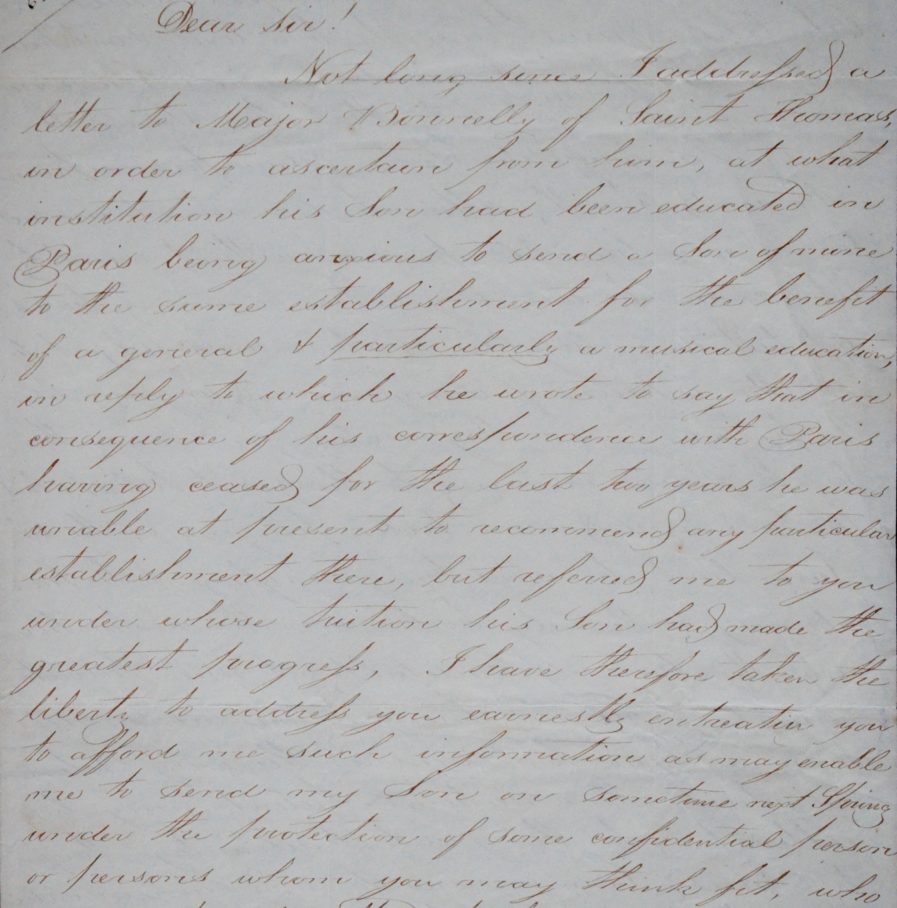 Dear Sir!
Not long since I addressed a
letter to Major Donnelly of Saint Thomas,
in order to ascertain from him, at what
institution his Son had been educated in
Paris being anxious to send a Son of mine
to the same establishment for the benefit
of a general & particularly a musical education,
in reply to which he wrote to say that in
consequence of his correspondence with Paris
having ceased for the last two years he was
unable at present to recommend any particular
establishment there, but referred me to you
under whose tuition his Son had made the
greatest progress, I have therefore taken the
liberty to address you earnestly entreatin you
to afford me such information as may enable
me to send my Son on sometime next Spring
under the protection of some confidential person
or persons whom you may think fit, who